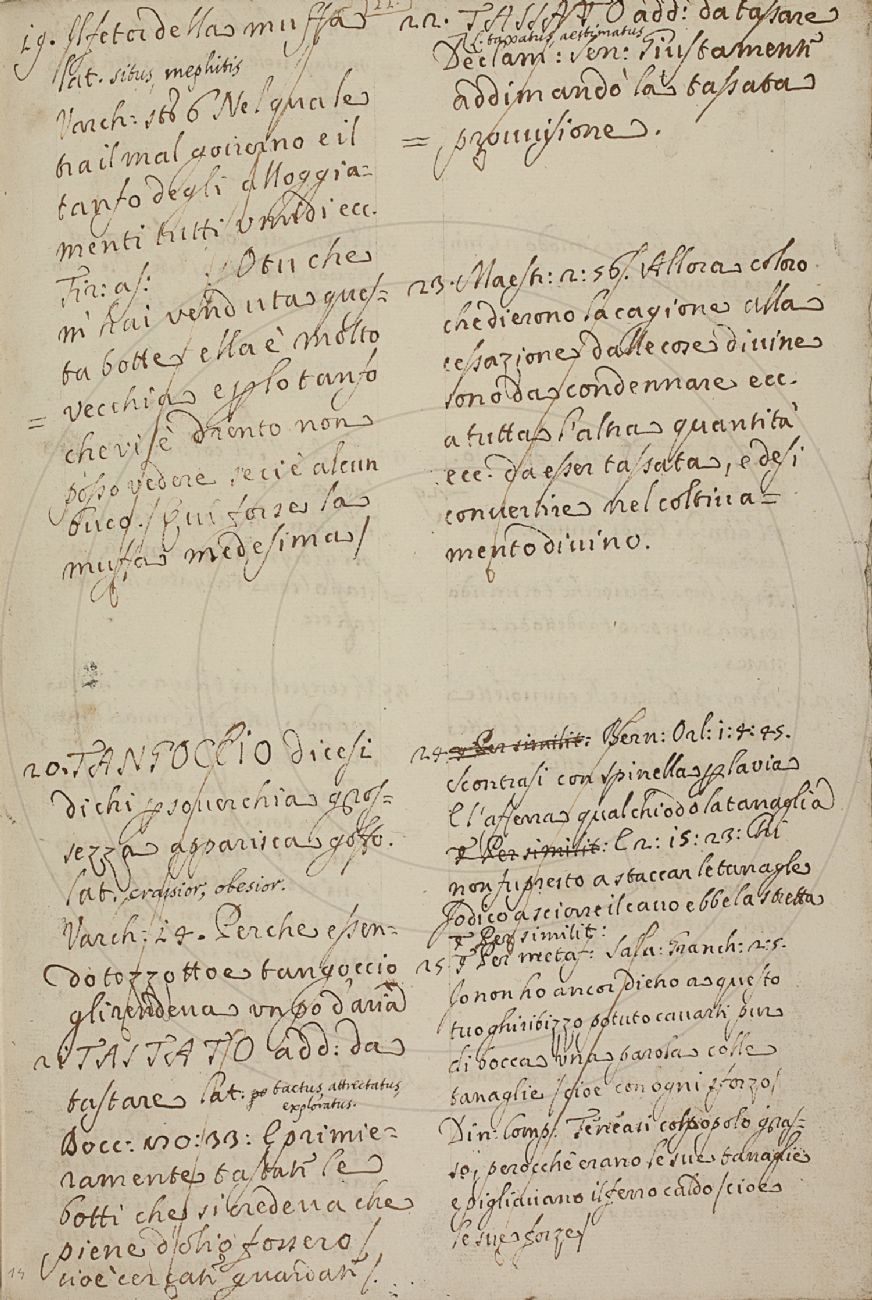 19. Il fetor della muffa
lat. situs, mephitis
Varch: sto 6 Nel quale
tra il mal governo e il
tanfo degli alloggia=
menti tutti umidi ecc.
Fir: as: O tu che
m'hai venduta ques=
ta botte ella è molto
vecchia e plo tanfo
che vi è drento non
posso vedere se ci è alcun
buco. / Qui forse la
muffa medesima /
20. TANGOCCIO dicesi
di chi p soverchia gros=
sezza apparisca goffo.
lat. crassior, obesior.
Varch: 14. Perche essen=
do tozzotto e tangoccio
gli rendeva un po d'aria
21 TASTATO add: da
tastare lat. tactus, attrectatus
exploratus.
Bocc: n 20: 33: E primie=
ramente tastati le
botti che si credeva che
piene d'olio fossero /
cioè cercati guardati /.
22. TASSATO add: da tassare
l: taxatus, aestimatus
Declam: Sen: Giustamente
addimandò la tassata
= provvisione.
23. Maestr: 2: 56. Allora coloro
che dierono la cagione alla
cessazione dalle cose divine
sono da condennare ecc.
a tutta l'altra quantità
ecc. da esser tassata, e desi
convertire nel coltiva=
mento divino.
24. Per similit: Bern: Orl: 1: 4: 45.
Scontrasi con spinella p la via
E l'afferra qual chiodo la tanaglia
Per similit: E 2: 15: 23: Chi
non fu presto a staccar le tanagle
Io dico a sciorre il cavo ebbe la stretta
T Per similit:
25 T Per metaf: Salv: Granch: 2: 5.
Io non ho ancor dietro a questo
tuo ghiribizzo potuto cavarti pur
di bocca una parola colle
tanaglie / cioe con ogni sforzo /
Din: Comp: Teneasi col popolo gras=
so, perocchè erano le sue tanaglie
e pigliavano il ferro caldo / cioe
le sue forze /